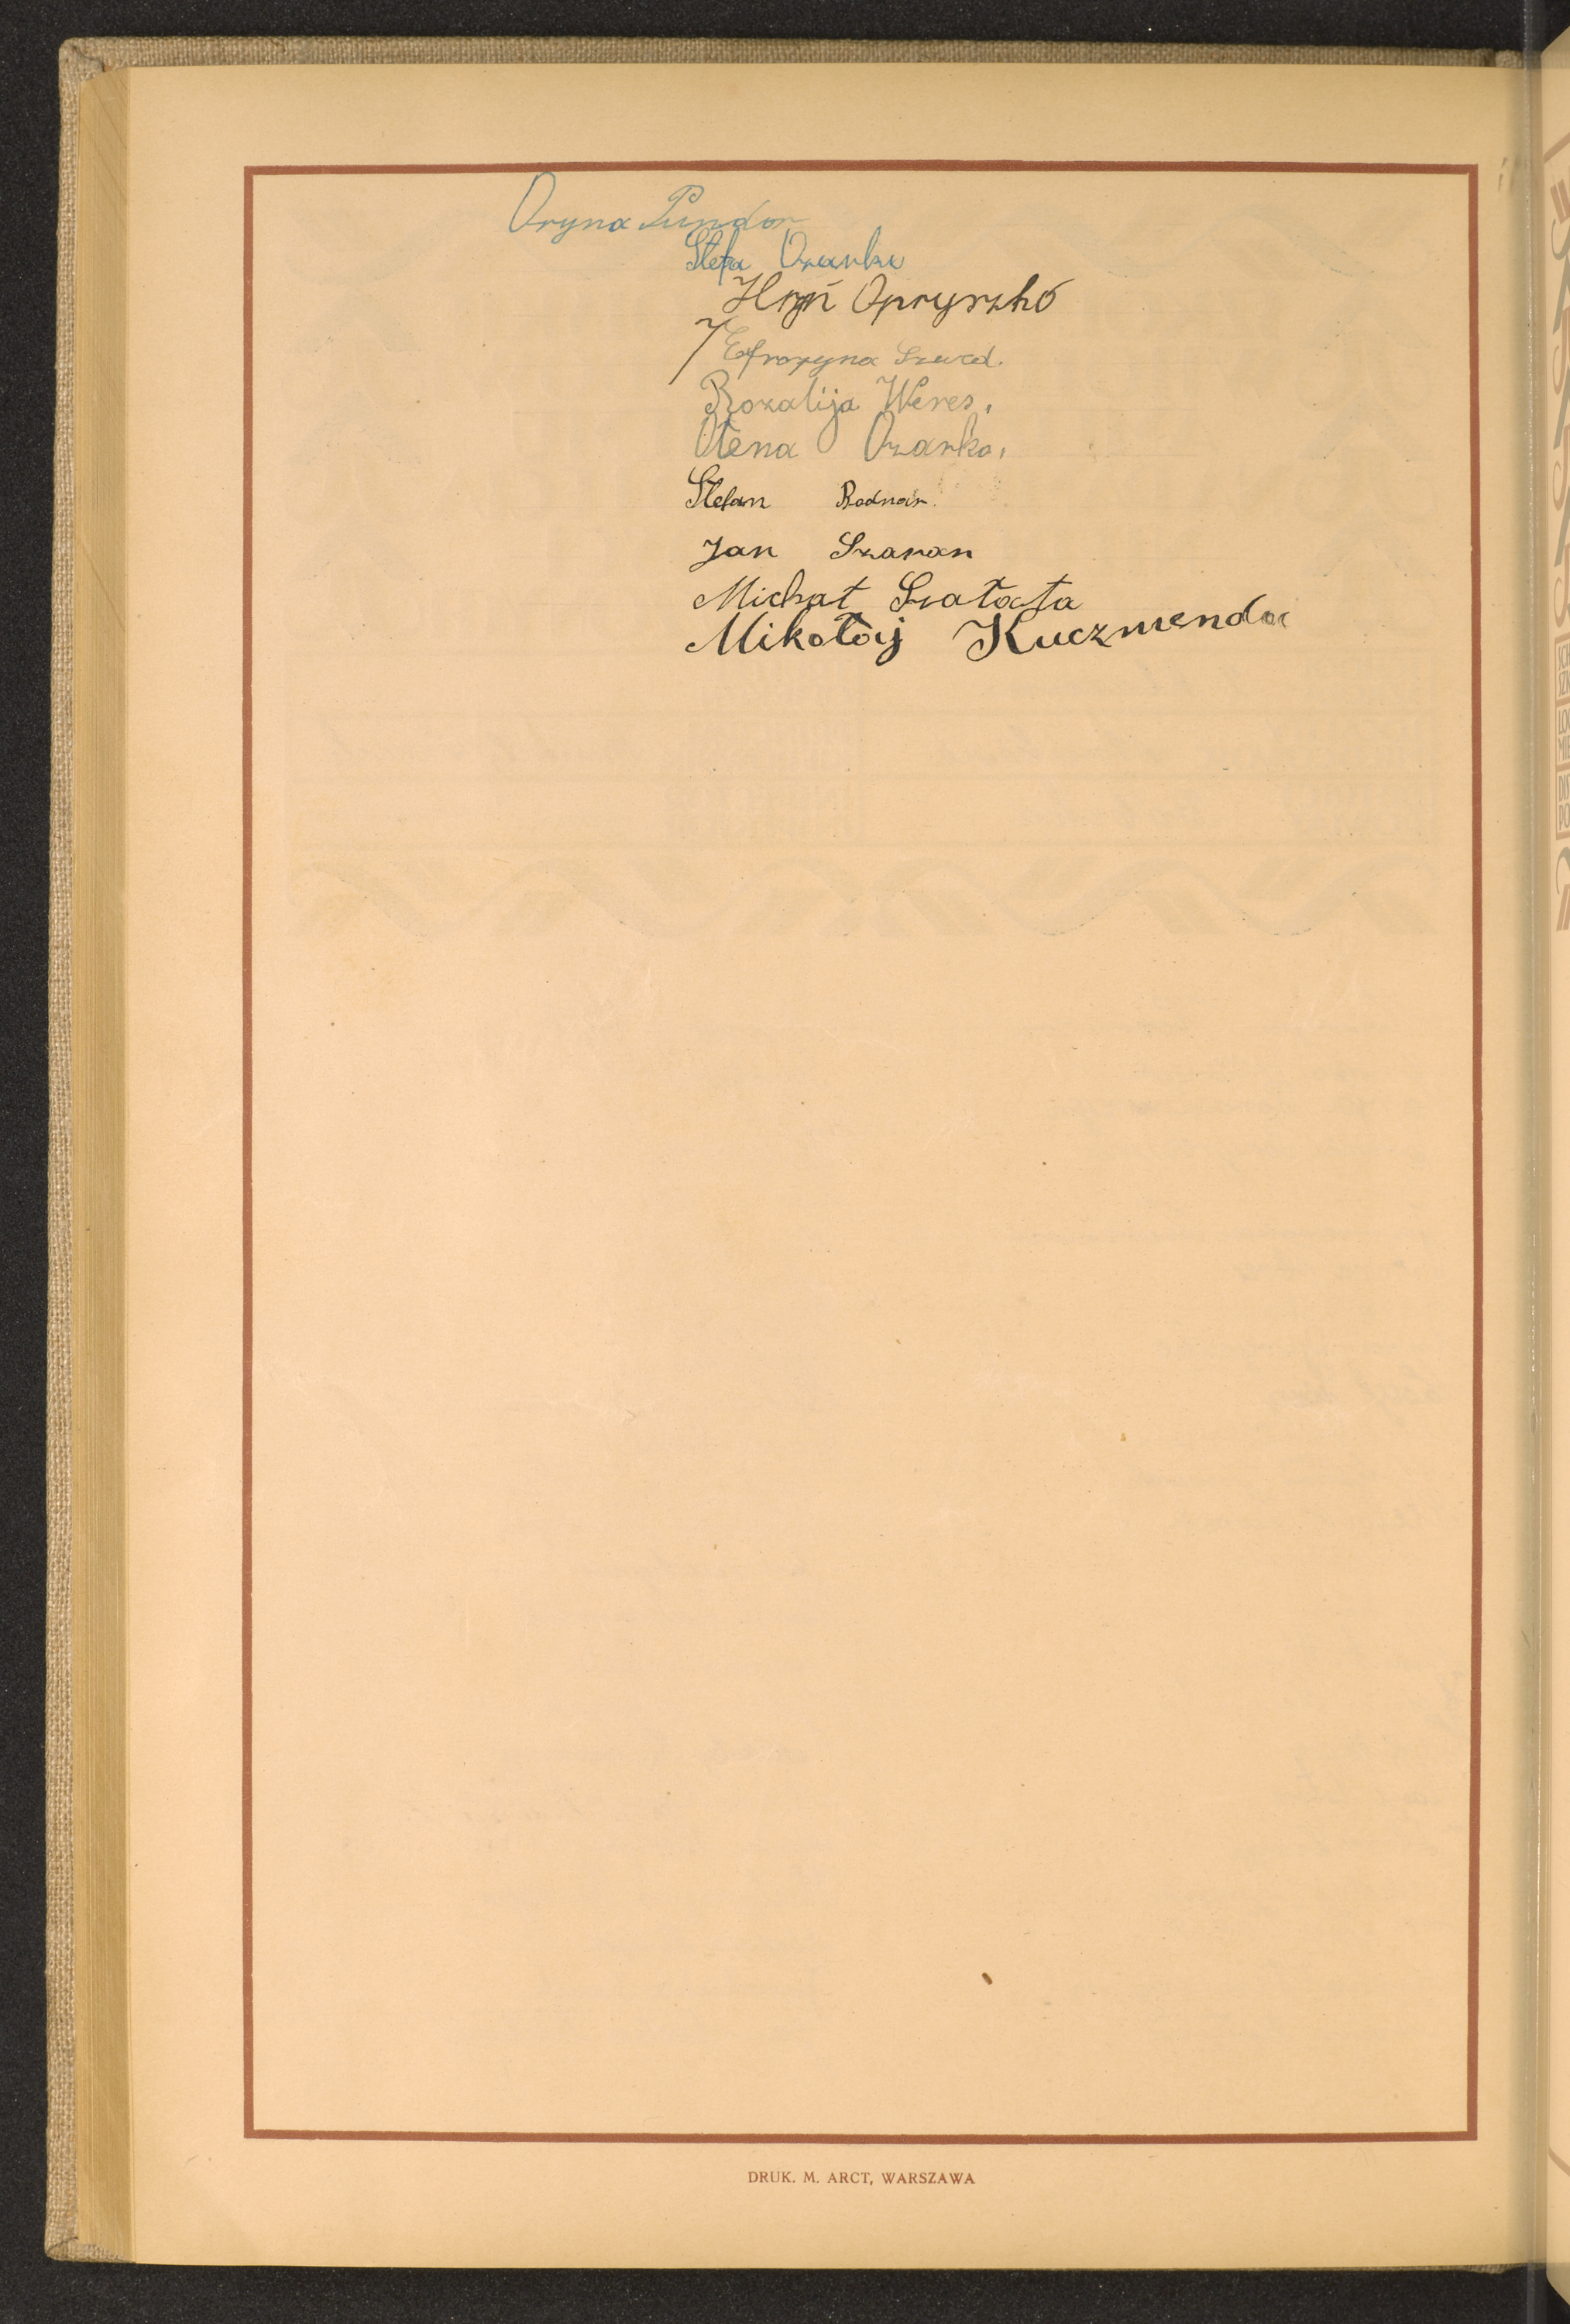 Oryna Pundor
Stefa Ozarko
Hryń Opryszkó
Efrozyna Szwed.
Rozalija Weres.
Ołena Ozarko.
Stefan Bodnar.
Jan Szaran
Michał Szałaśta
Mikołaj Kuczmenda
DRUK. M. ARCT, WARSZAWA